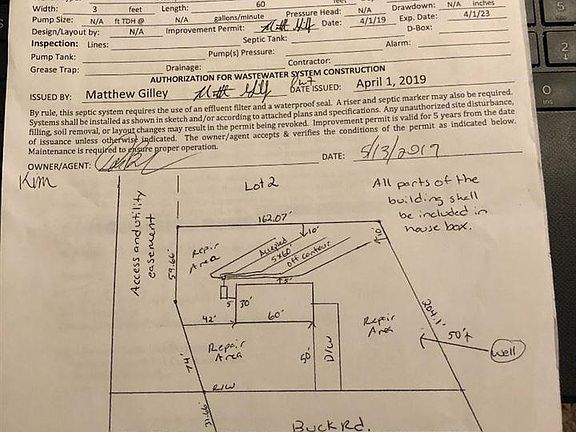 Width: 3 feet Length: 60 feet Depth: inches
Pump Size: N/A ft TDH @ N/A gallons/minute Pressure Head: N/A Drawdown: N/A inches
Design/Layout by: N/A Improvement Permit: Date: 4/1/19 Exp. Date: 4/1/23
Inspection: Lines: Septic Tank: D-Box:
Pump Tank: Pump(s) Pressure: Alarm:
Grease Trap: Drainage: Contractor:
AUTHORIZATION FOR WASTEWATER SYSTEM CONSTRUCTION
ISSUED BY: Matthew Gilley DATE ISSUED: April 1, 2019
By rule, this septic system requires the use of an effluent filter and a waterproof seal. A riser and septic marker may also be required.
Systems shall be installed as shown in sketch and/or according to attached plans and specifications. Any unauthorized site disturbance,
filling, soil removal, or layout changes may result in the permit being revoked. Improvement permit is valid for 5 years from the date
of issuance unless otherwise indicated. The owner/agent accepts & verifies the conditions of the permit as indicated below.
Maintenance is required to ensure proper operation.
OWNER/AGENT: DATE: 5/13/2019
Kim
Lot 2
All parts of the
building shall
be included in
house box.
Access and utility
easement
162.07'
10'
10
59.66'
Repair
Area
Accepted
5x60
off contour
5'
5
30'
60'
42'
Repair
Area
Repair
Area
204.1'
50'+
Well
74'
50'
D/W
R/W
31.66'
Buck Rd.